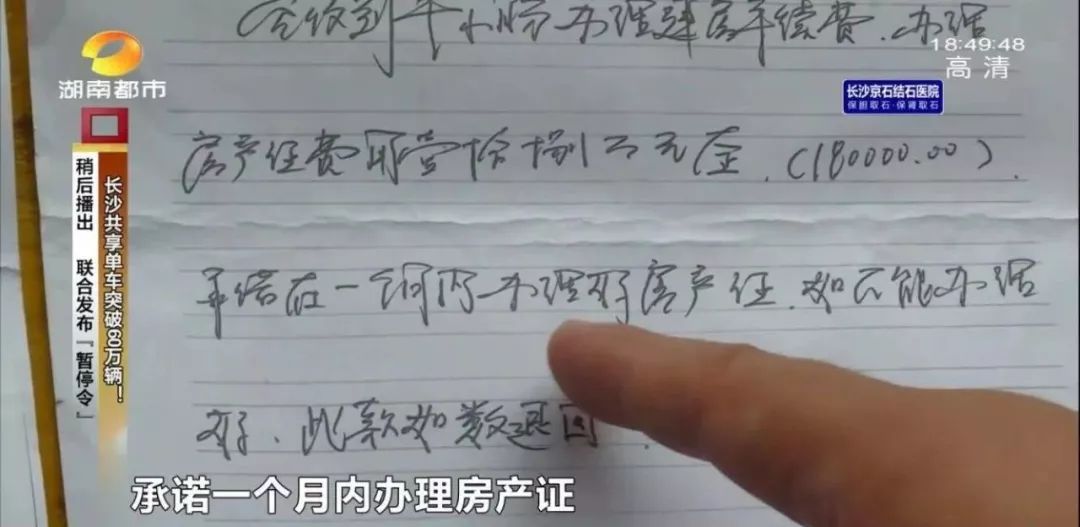 18:49:48
高清
湖南都市
长沙京石结石医院
保胆取石·保肾取石
今收到 办理建房手续费.办理
房产证费用壹拾捌万元整.(180000.00).
承诺在一个月内办理好房产证.如不能办理
好、此款如数退回.
长沙共享单车突破60万辆!
稍后播出 联合发布「暂停令」
承诺一个月内办理房产证